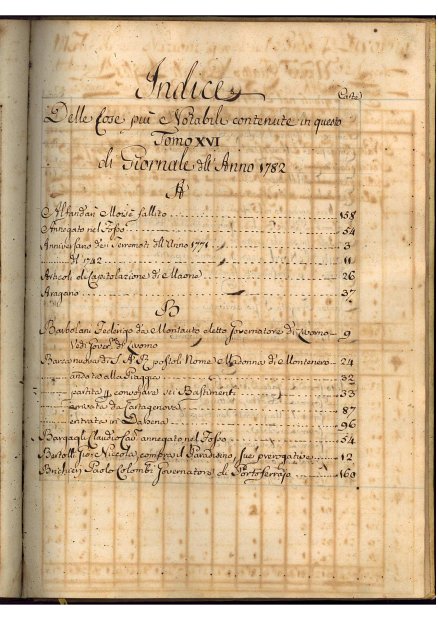 Indice
Carte
Delle Cose più Notabili contenute in questo
Tomo XVI
di Giornale dell'Anno 1782
A
Alfandari Moisè fallito 158
Annegato nel Fosso 54
Anniversario dei Terremoti dell'Anno 1771 3
del 1742 11
Articoli di Capitolazione di Maone 26
Aragano 37
B
Barbolani Federigo da Montauto eletto Governatore di Livorno 9
Vedi Gover. di Livorno
Barca nuova di S. A. R. postoli Nome Madonna di Montenero 24
andata alla Piaggia 32
partita p. convojare sei Bastimenti 33
arrivata da Cartagenova 87
entrata in Darsena 96
Bargagli Claudio Cav. annegato nel Fosso 54
Bertolli Gio: Niccola, compra il Paradisino, sue prerogative 12
Paolo Colombi Governatore di Portoferrajo 160